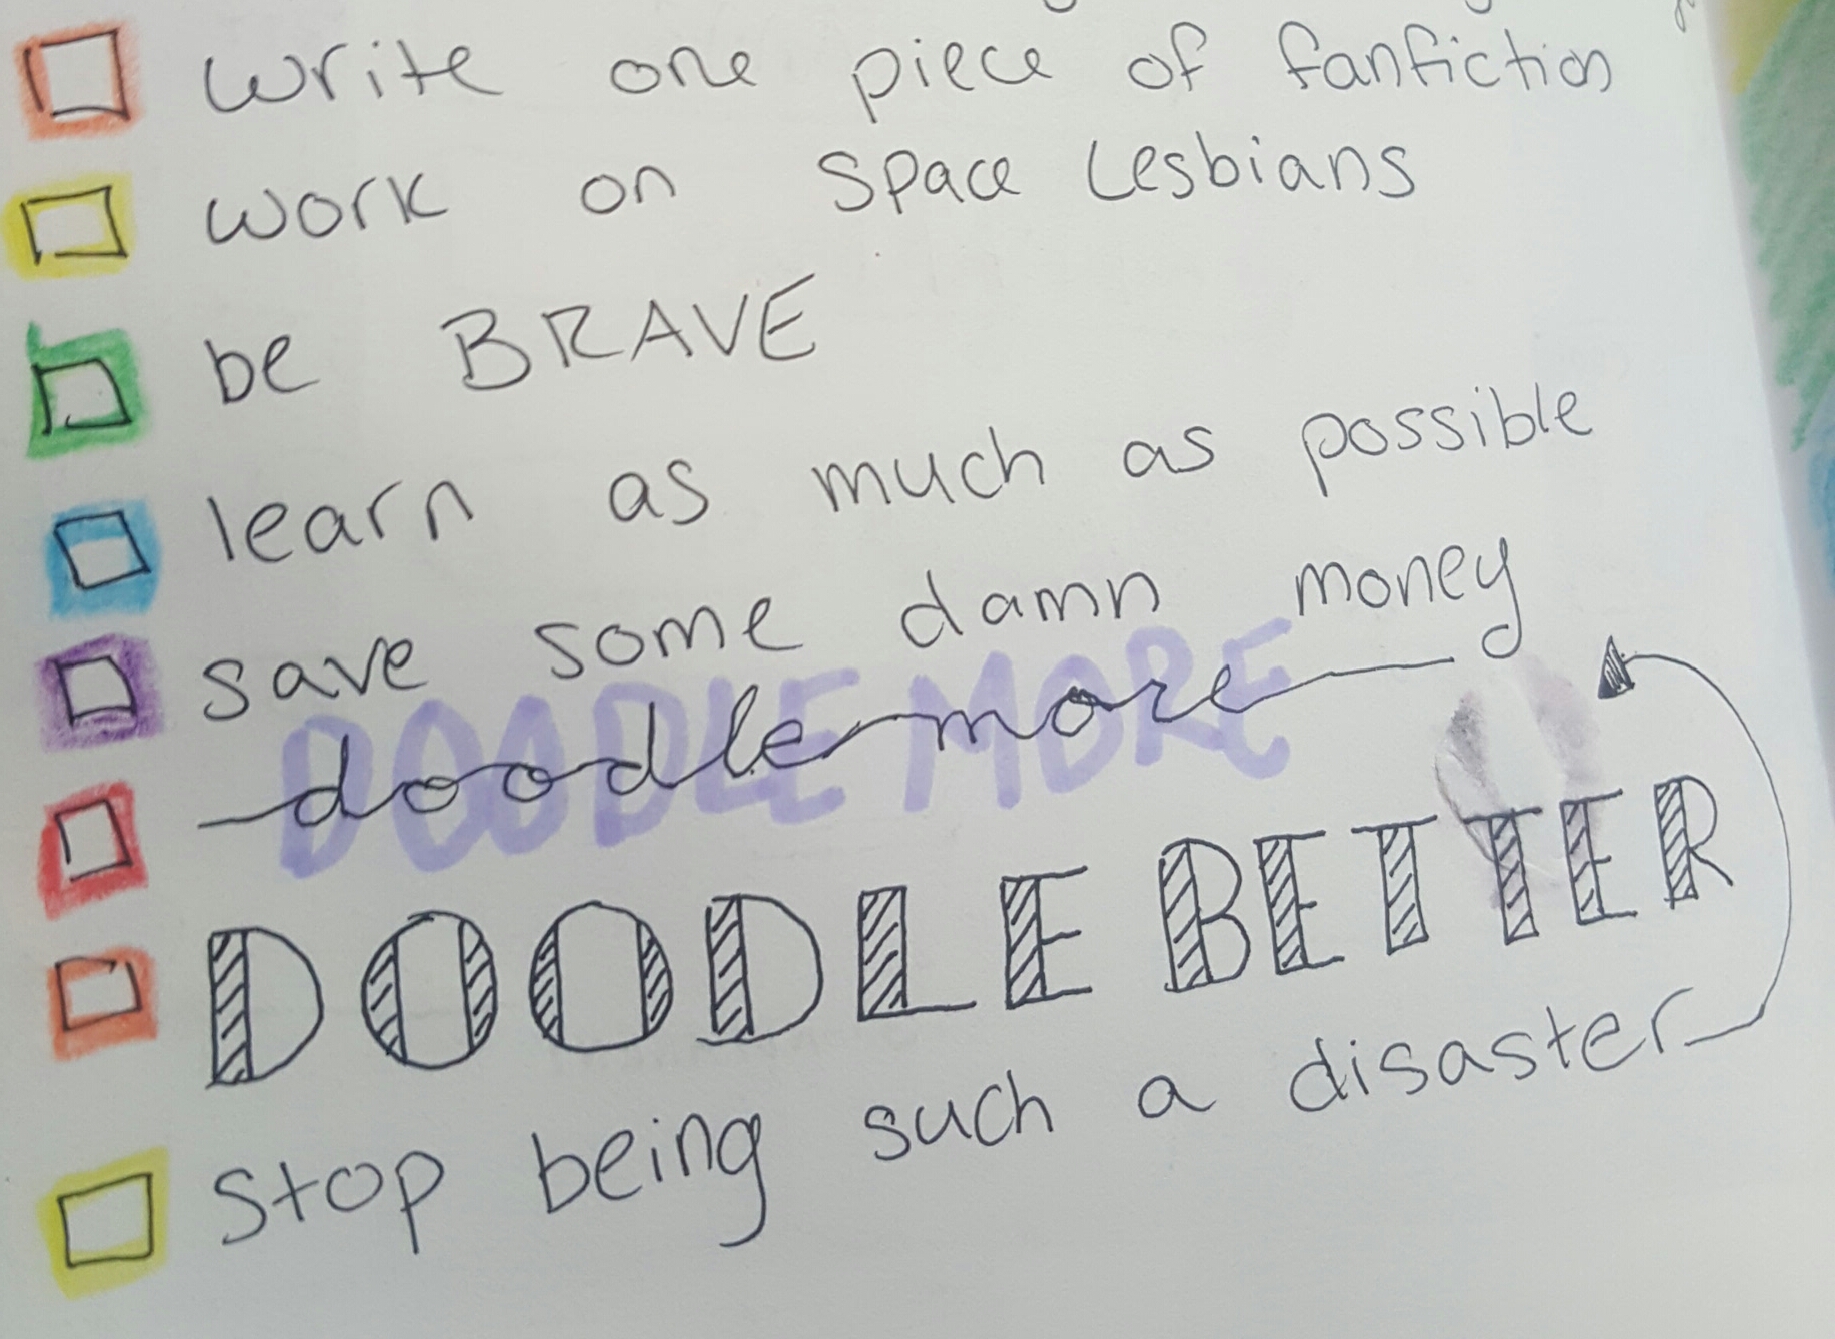 write one piece of fanfiction
work on Space Lesbians
be BRAVE
learn as much as possible
save some damn money
DOODLE MORE
doodle more
DOODLE BETTER
Stop being such a disaster